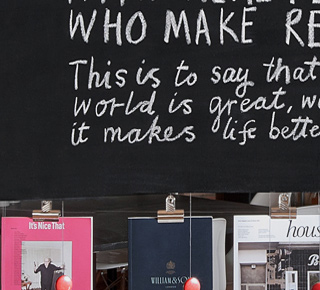 WHO MAKE RE
This is to say that
world is great, w
it makes life bette
It's Nice That
WILLIAM & SO
hous